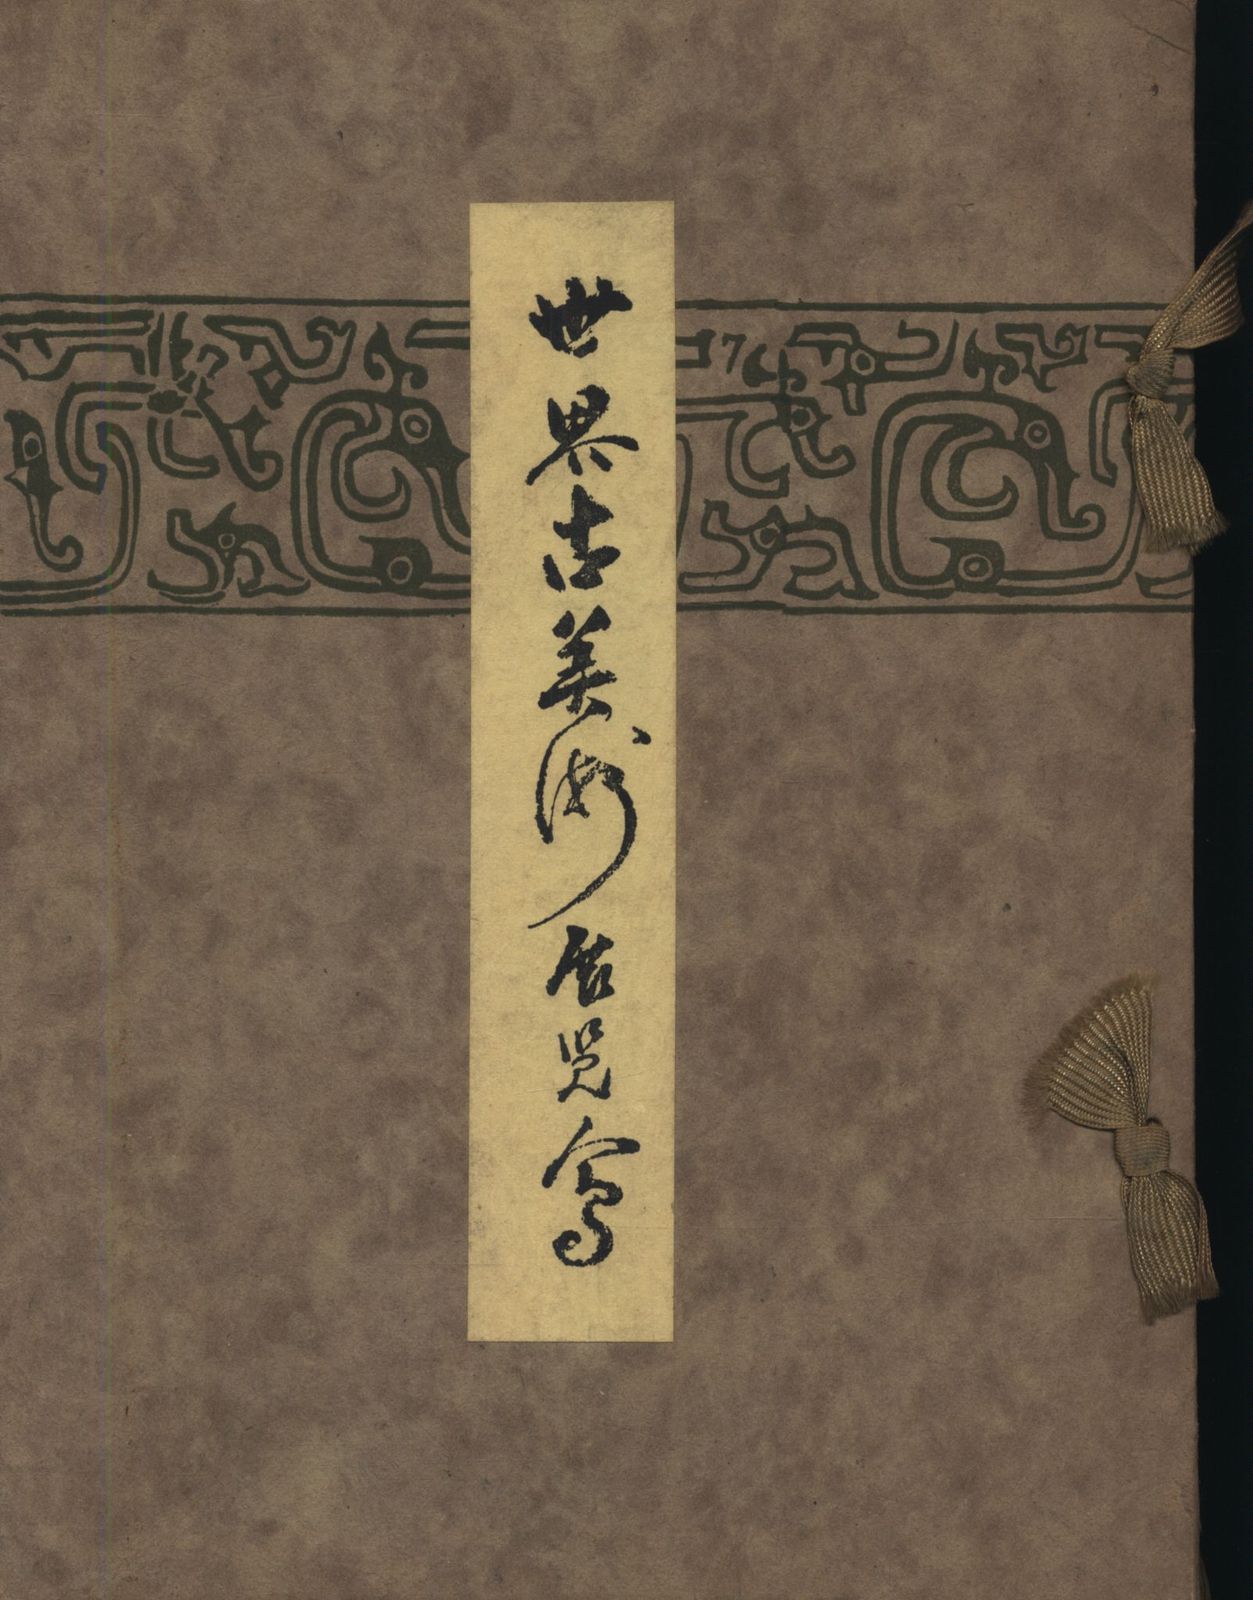 世界古美術展覧会